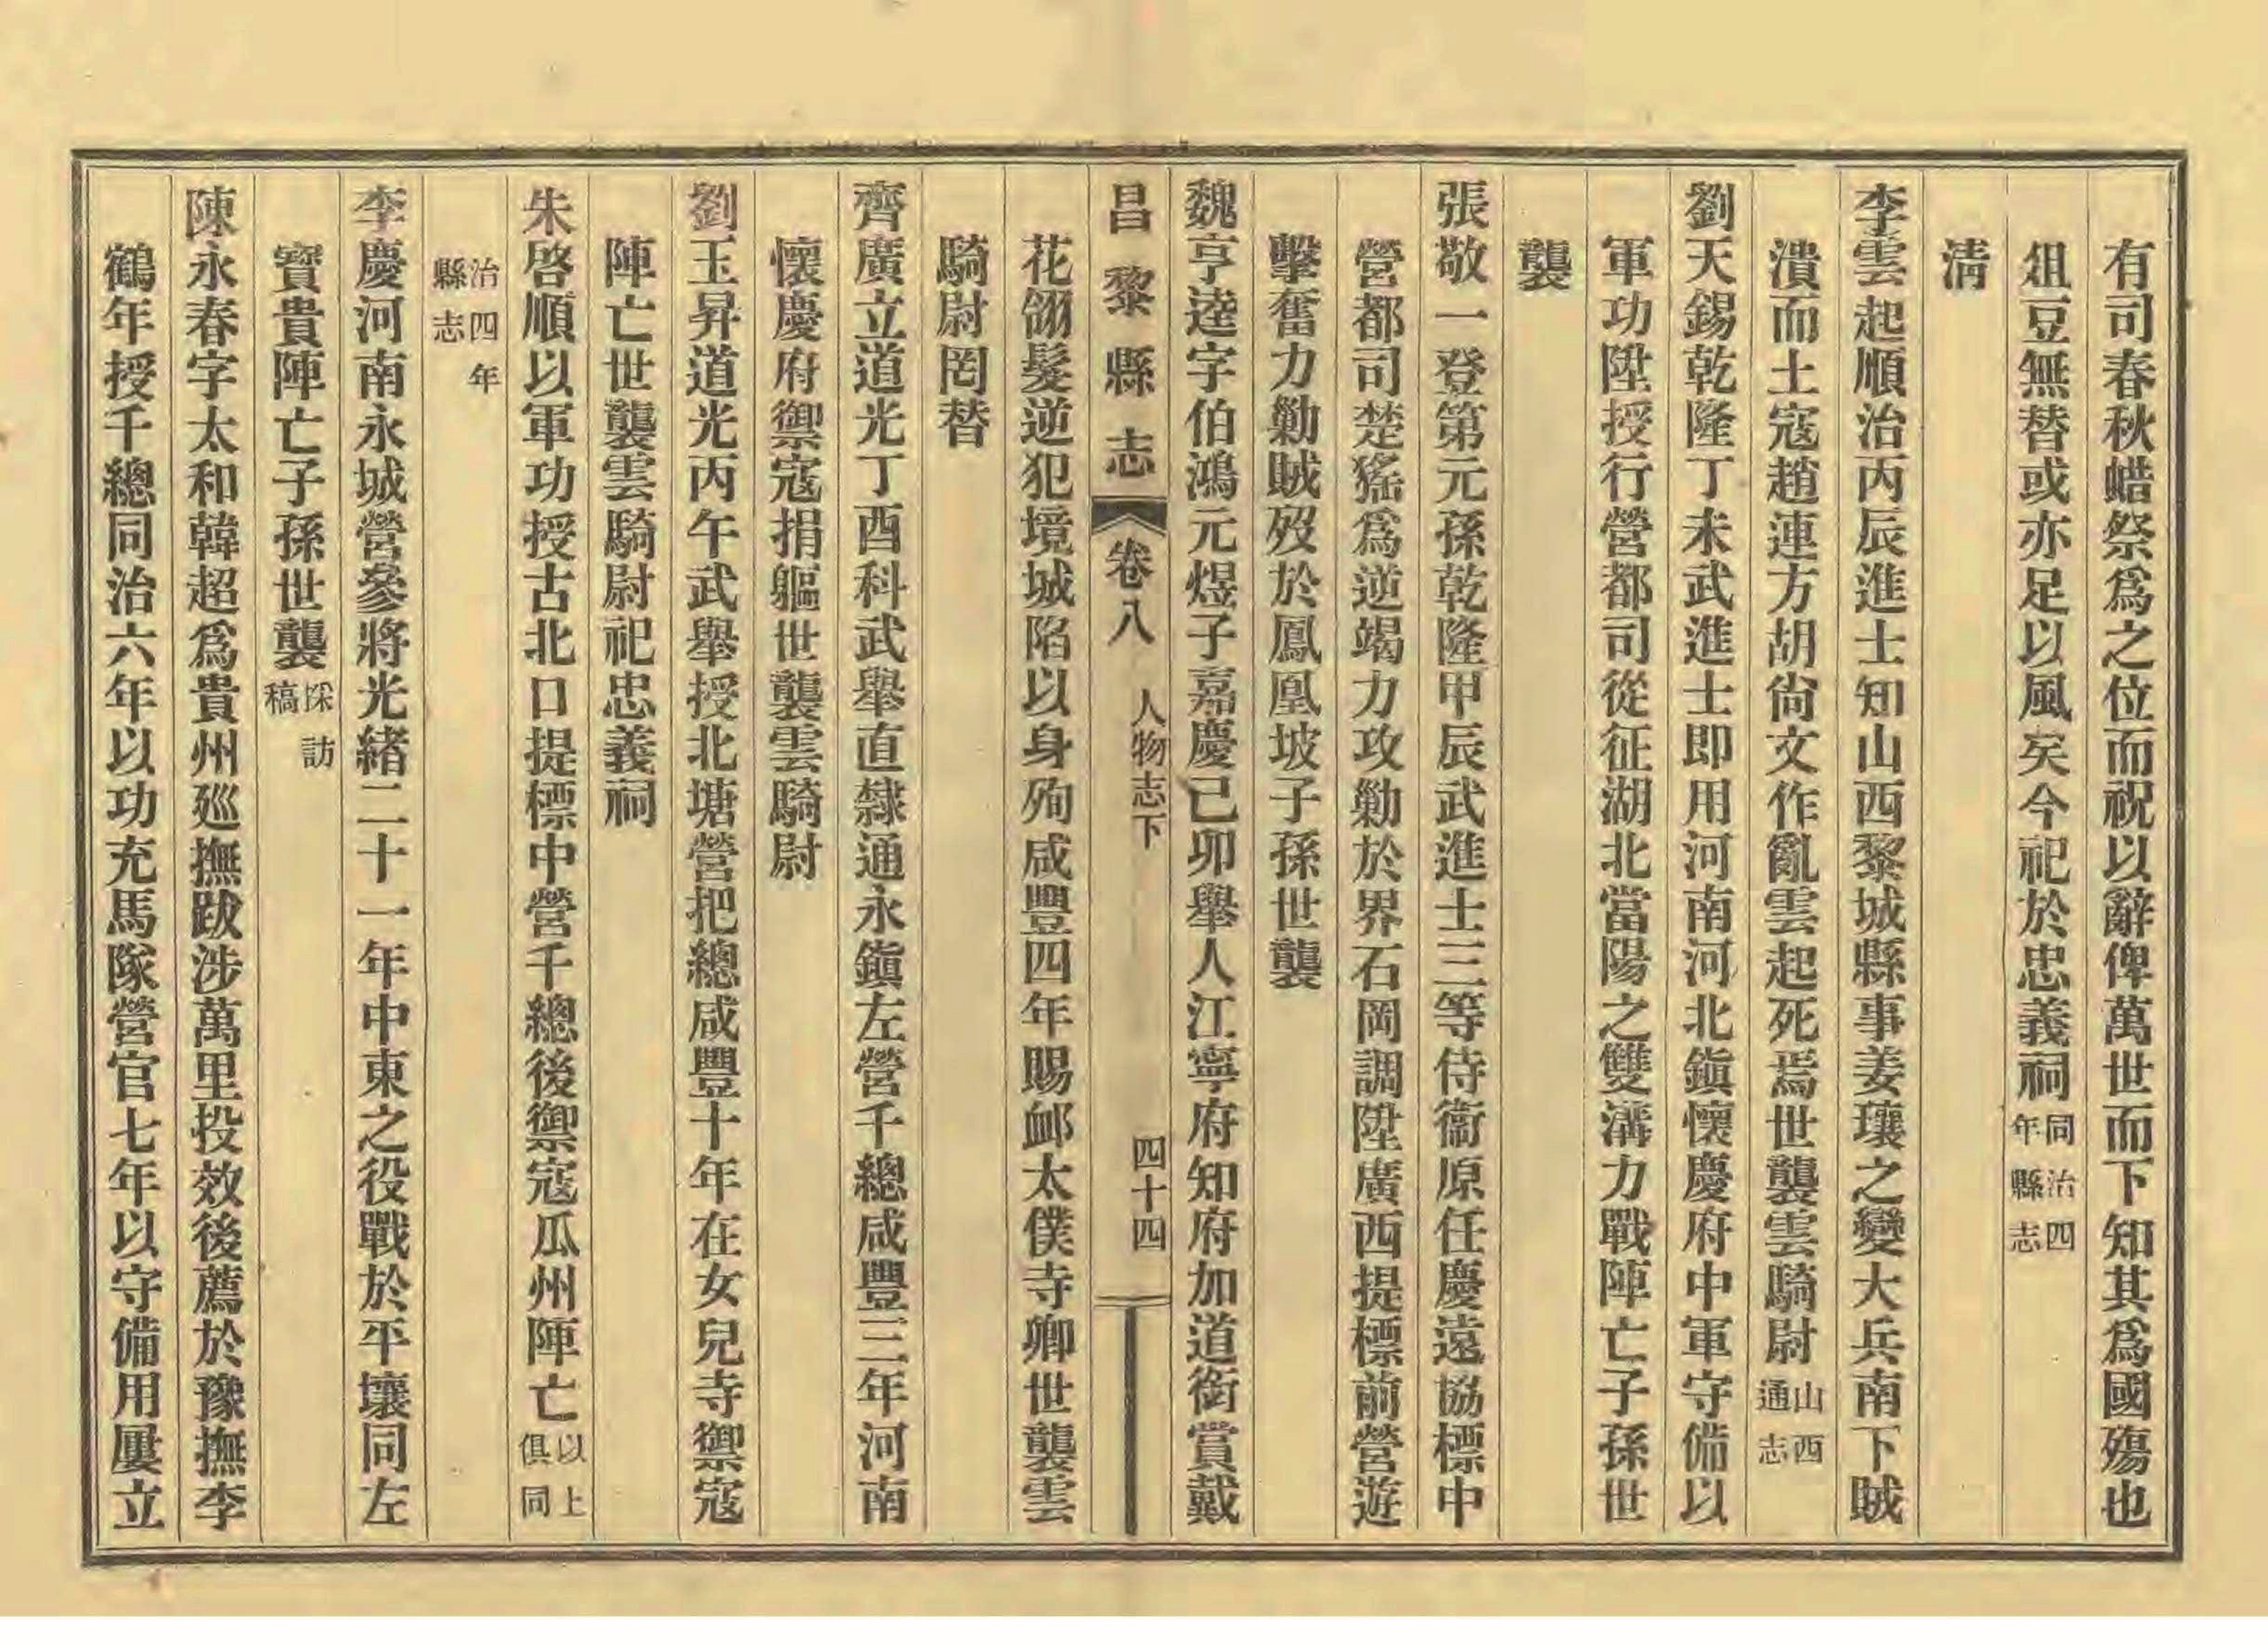 有司春秋蜡祭爲之位而祝以辭俾萬世而下知其爲國殤也
俎豆無替或亦足以風矣今祀於忠義祠同治四年縣志
清
李雲起順治丙辰進士知山西黎城縣事姜瓖之變大兵南下賊
潰而土寇趙連方胡尙文作亂雲起死焉世襲雲騎尉山西通志
劉天錫乾隆丁未武進士即用河南河北鎭懷慶府中軍守備以
軍功陞授行營都司從征湖北當陽之雙溝力戰陣亡子孫世
襲
張敬一登第元孫乾隆甲辰武進士三等侍衞原任慶遠協標中
營都司楚猺爲逆竭力攻勦於界石岡調陞廣西提標前營遊
擊奮力勦賊歿於鳳凰坡子孫世襲
魏亨逵字伯鴻元煜子嘉慶己卯舉人江寧府知府加道銜賞戴
昌黎縣志 卷八 人物志下 四十四
花翎髮逆犯境城陷以身殉咸豐四年賜卹太僕寺卿世襲雲
騎尉罔替
齊廣立道光丁酉科武舉直隸通永鎭左營千總咸豐三年河南
懷慶府禦寇捐軀世襲雲騎尉
劉玉昇道光丙午武舉授北塘營把總咸豐十年在女兒寺禦寇
陣亡世襲雲騎尉祀忠義祠
朱啓順以軍功授古北口提標中營千總後禦寇瓜州陣亡以上俱同
治四年縣志
李慶河南永城營參將光緒二十一年中東之役戰於平壤同左
寶貴陣亡子孫世襲採訪稿
陳永春字太和韓超爲貴州廵撫跋涉萬里投效後薦於豫撫李
鶴年授千總同治六年以功充馬隊營官七年以守備用屢立